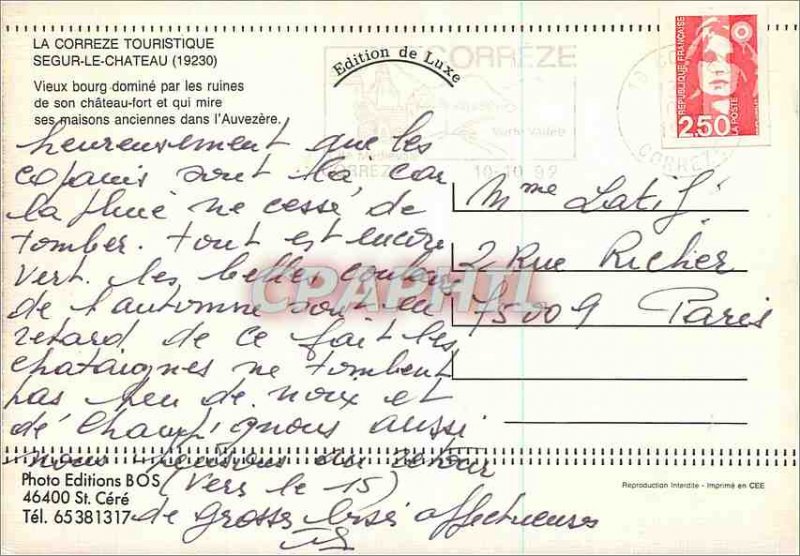 LA CORREZE TOURISTIQUE
SEGUR-LE-CHATEAU (19230)
Vieux bourg dominé par les ruines
de son château-fort et qui mire
ses maisons anciennes dans l'Auvezère.
Edition de Luxe
CORREZE
Verte Vallée
CORREZE
10-10 92
CORREZE
REPUBLIQUE FRANÇAISE
2,50
LA POSTE
heureusement que les
copains sont là, car
la pluie ne cesse de
tomber. tout est encore
vert. les belles couleurs
de l'automne sont en
retard de ce fait les
chataignes ne tombent
pas peu de noix et
de champignons aussi
nous pensons au retour
(Vers le 15)
de grosses bises affectueuses
Mme Latif
2 Rue Richer
75009 Paris
CPAPHIL
Photo Editions BOS
46400 St. Céré
Tél. 65381317
Reproduction Interdite - Imprimé en CEE